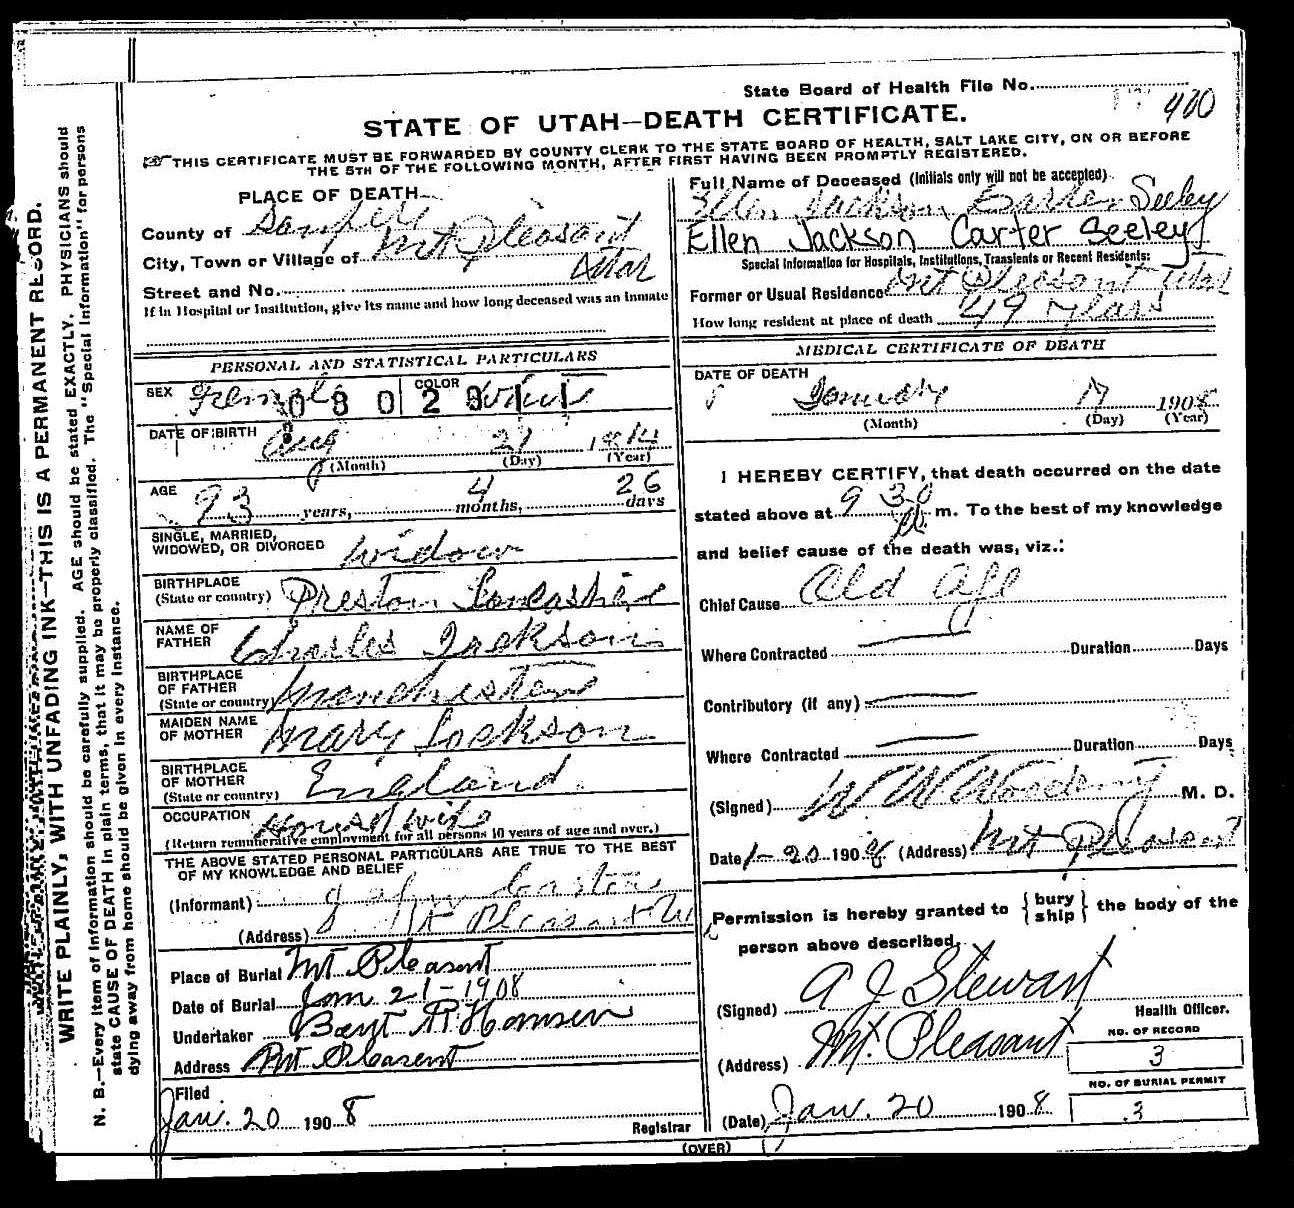 State Board of Health File No. 400
STATE OF UTAH—DEATH CERTIFICATE.
THIS CERTIFICATE MUST BE FORWARDED BY COUNTY CLERK TO THE STATE BOARD OF HEALTH, SALT LAKE CITY, ON OR BEFORE
THE 5TH OF THE FOLLOWING MONTH, AFTER FIRST HAVING BEEN PROMPTLY REGISTERED.
PLACE OF DEATH
County of Sanpete
City, Town or Village of Mt Pleasant
Utah
Street and No.
If in Hospital or Institution, give its name and how long deceased was an inmate
Full Name of Deceased (Initials only will not be accepted)
Ellen Jackson Seeley
Ellen Jackson Carter Seeley
Special Information for Hospitals, Institutions, Transients or Recent Residents:
Former or Usual Residence Mt Pleasant Utah
How long resident at place of death 49 Years
PERSONAL AND STATISTICAL PARTICULARS
SEX Female
COLOR White
080 29 11
DATE OF BIRTH Aug 21 1814
(Month) (Day) (Year)
AGE 93 years, 4 months, 26 days
SINGLE, MARRIED,
WIDOWED, OR DIVORCED Widow
BIRTHPLACE
(State or country) Preston Lancashire
NAME OF
FATHER Charles Jackson
BIRTHPLACE
OF FATHER
(State or country) Manchester
MAIDEN NAME
OF MOTHER Mary Jackson
BIRTHPLACE
OF MOTHER
(State or country) England
OCCUPATION Housewife
(Return remunerative employment for all persons 10 years of age and over.)
THE ABOVE STATED PERSONAL PARTICULARS ARE TRUE TO THE BEST
OF MY KNOWLEDGE AND BELIEF
(Informant) John Carter
(Address) Mt Pleasant U
Place of Burial Mt Pleasent
Date of Burial Jan 21-1908
Undertaker Bent R Hansen
Address Mt Pleasent
Filed
Jan. 20 1908
Registrar
MEDICAL CERTIFICATE OF DEATH
DATE OF DEATH
January 17 1908
(Month) (Day) (Year)
I HEREBY CERTIFY, that death occurred on the date
stated above at 9 30 m. To the best of my knowledge
and belief cause of the death was, viz.:
Chief Cause Old Age
Where Contracted Duration Days
Contributory (if any)
Where Contracted Duration Days
(Signed) W W Woodring M. D.
Date 1-20 1908 (Address) Mt Pleasant
Permission is hereby granted to {bury ship} the body of the
person above described.
(Signed) A J Stewart
Health Officer.
(Address) Mt. Pleasant
NO. OF RECORD
3
NO. OF BURIAL PERMIT
3
(Date) Jan. 20 1908
(OVER)
WRITE PLAINLY, WITH UNFADING INK—THIS IS A PERMANENT RECORD.
N. B.—Every item of information should be carefully supplied. AGE should be stated EXACTLY. PHYSICIANS should
state CAUSE OF DEATH in plain terms, that it may be properly classified. The "Special Information" for persons
dying away from home should be given in every instance.